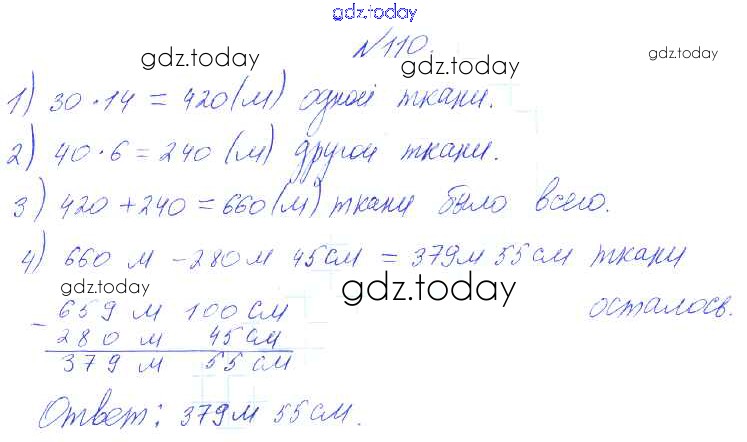 gdz.today
№110.
gdz.today gdz.today gdz.today
1) 30 · 14 = 420 (м) одной ткани.
2) 40 · 6 = 240 (м) другой ткани.
3) 420 + 240 = 660 (м) ткани было всего.
4) 660 м - 280 м 45 см = 379 м 55 см ткани
осталось.
gdz.today gdz.today
- 659 м 100 см
280 м 45 см
379 м 55 см
Ответ: 379 м 55 см.